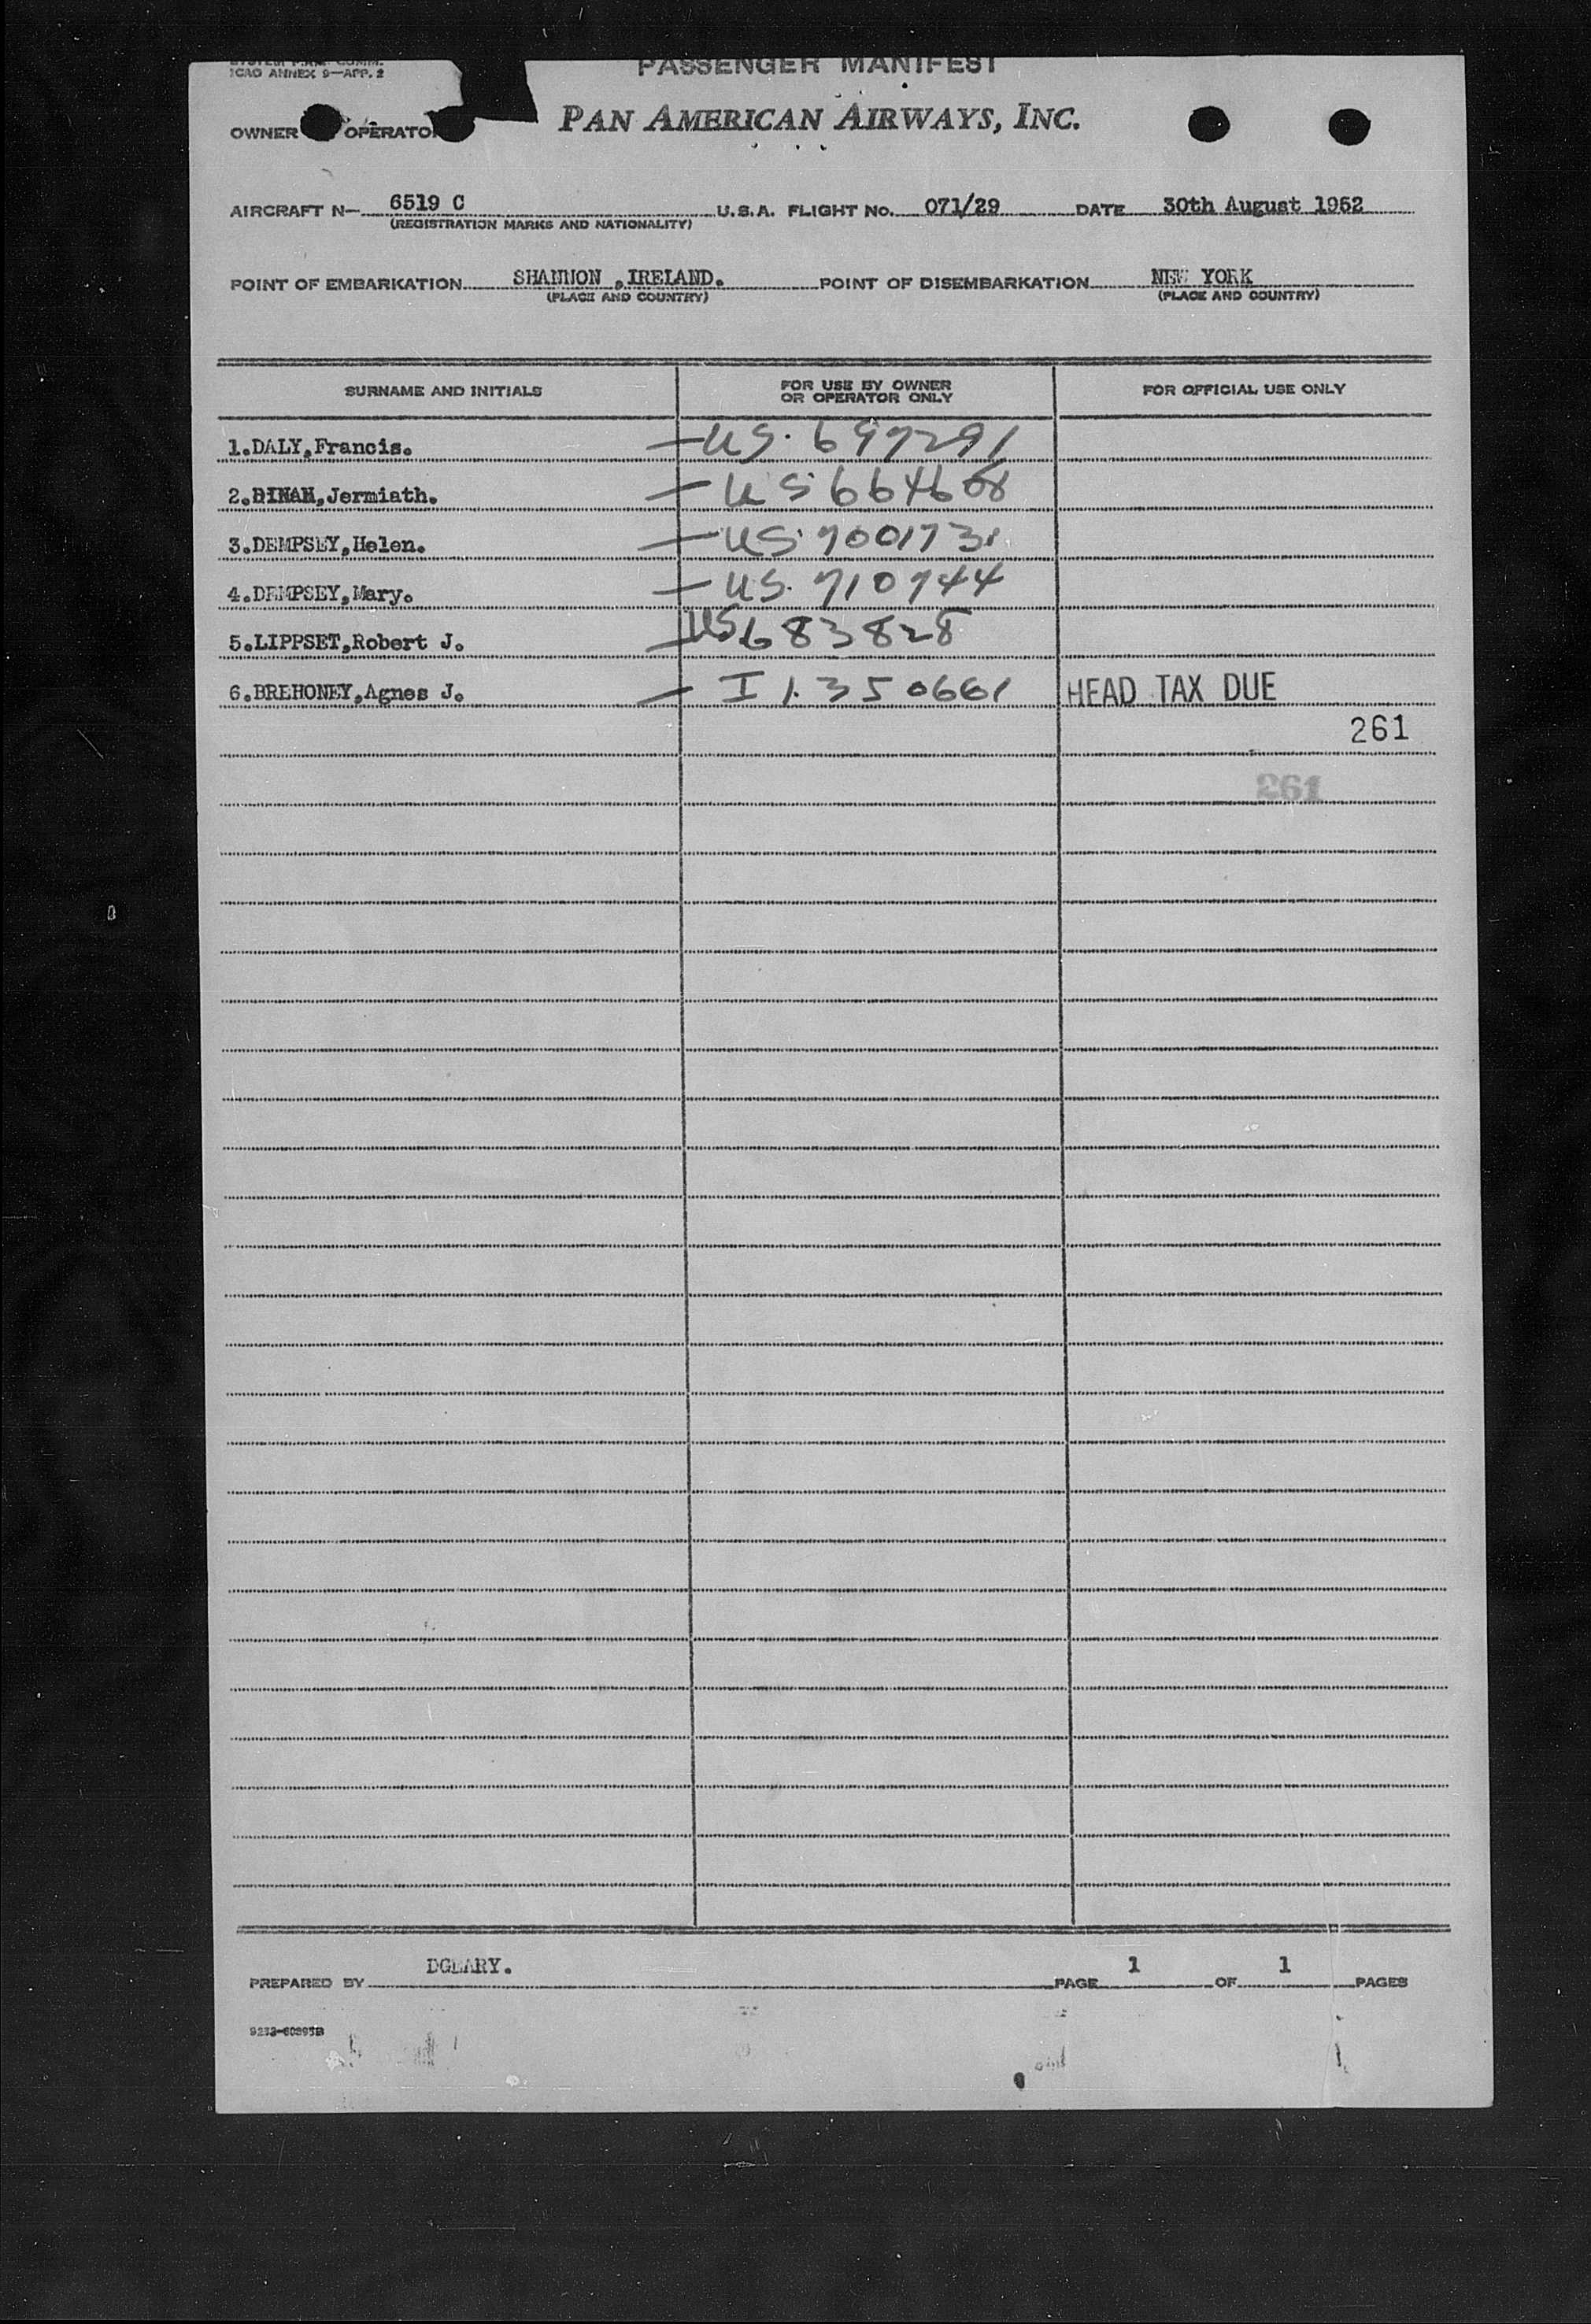 ICAO ANNEX 9—APP. 2
PASSENGER MANIFEST
OWNER OPERATOR PAN AMERICAN AIRWAYS, INC.
AIRCRAFT N— 6519 C U.S.A. FLIGHT No. 071/29 DATE 30th August 1952
(REGISTRATION MARKS AND NATIONALITY)
POINT OF EMBARKATION SHANNON ,IRELAND. POINT OF DISEMBARKATION NEW YORK
(PLACE AND COUNTRY) (PLACE AND COUNTRY)
SURNAME AND INITIALS FOR USE BY OWNER OR OPERATOR ONLY FOR OFFICIAL USE ONLY
1.DALY,Francis. — US. 697291
2. Jermiath. — US 664608
3.DEMPSEY,Helen. — US
4.DEMPSEY,Mary. — US. 710744
5.LIPPSET,Robert J. — US 683828
6.BREHONEY,Agnes J. — I 1.350661 HEAD TAX DUE
261
261
PREPARED BY DGEARY. PAGE 1 OF 1 PAGES